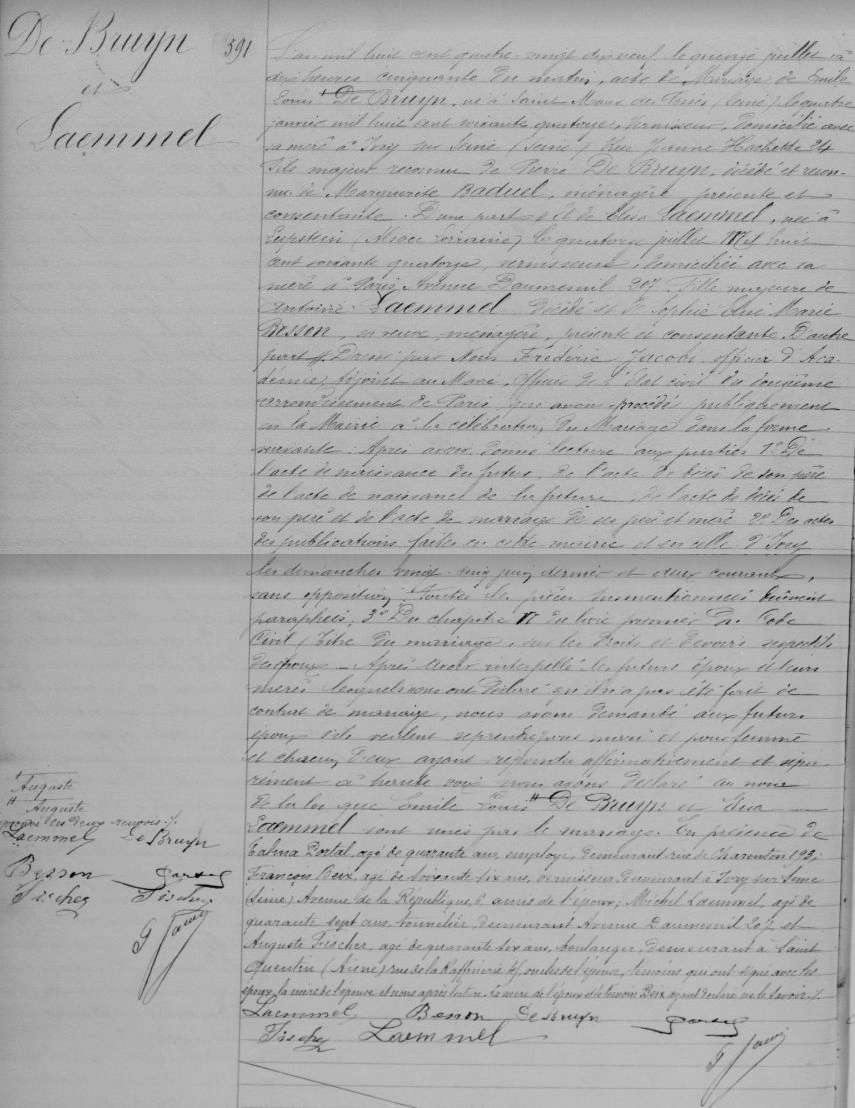 De Bruyn
et
Laemmel
591
L'an mil huit cent quatre-vingt dix neuf, le quinze juillet à
dix heures cinquante du matin, acte de Mariage de Emile
Louis De Bruyn, né à Saint Maur des Fossés, (Seine) le quatre
janvier mil huit cent soixante quatorze, vernisseur, domicilié avec
sa mère à Ivry sur Seine (Seine) Rue Jeanne Hachette 24
fils majeur reconnu de Pierre De Bruyn, décédé et recon-
nu de Marguerite Baduel, ménagère présente et
consentante. D'une part. Et de Elisa Laemmel, née à
(Alsace Lorraine) le quatorze juillet Mil huit
cent soixante quatorze, vernisseuse, domiciliée avec sa
mère à Paris, Avenue Daumesnil 207 fille majeure de
Antoine Laemmel décédé et de Sophie Marie
Besson, sa veuve, ménagère, présente et consentante. D'autre
part Dressé par Nous Frédéric Jacobi officier d'Aca-
démie, adjoint au Maire, officier de l'Etat civil du douzième
arrondissement de Paris, qui avons procédé publiquement
en la Mairie à la célébration du Mariage dans la forme
suivante. Après avoir donné lecture aux parties 1° De
l'acte de naissance du futur, de l'acte de décès de son père
de l'acte de naissance de la future, de l'acte de décès de
son père et de l'acte de mariage de ses père et mère 2° Des actes
des publications faites en cette mairie et en celle d'Ivry
les dimanches vingt-cinq juin dernier et deux courant,
sans opposition, toutes les pièces susmentionnées dûment
paraphées, 3° Du chapitre VI du livre premier du Code
Civil, (titre du mariage), sur les droits et devoirs respectifs
des époux. Après avoir interpellé les futurs époux et leurs
mères lesquels nous ont déclaré qu'il n'a pas été fait de
contrat de mariage, nous avons demandé aux futurs
époux s'ils veulent se prendre pour mari et pour femme
et chacun d'eux ayant répondu affirmativement et sépa-
rément à haute voix nous avons déclaré au nom
de la loi que Emile Louis # De Bruyn et Elisa
Laemmel sont unis par le mariage. En présence de
Talma Portal, agé de quarante ans, employé, demeurant rue de Charenton 193;
François Beix, agé de soixante six ans, vernisseur demeurant à Ivry sur Seine
(Seine) Avenue de la République, 2 amis de l'époux; Michel Laemmel, agé de
quarante sept ans, tonnelier, demeurant Avenue Daumesnil 207 et
Auguste Fischer, agé de quarante six ans, boulanger, demeurant à Saint
Quentin (Aisne) rue de la Raffinerie oncles de l'épouse, témoins qui ont signé avec les
époux, la mère de l'épouse et nous après lecture. La mère de l'époux et le témoin Beix ayant déclaré ne le savoir ./.
Laemmel Besson De Bruyn
Fischer Laemmel
+ Auguste
# Auguste
approuvé les deux renvois ./.
Laemmel De Bruyn
Besson
Fischer